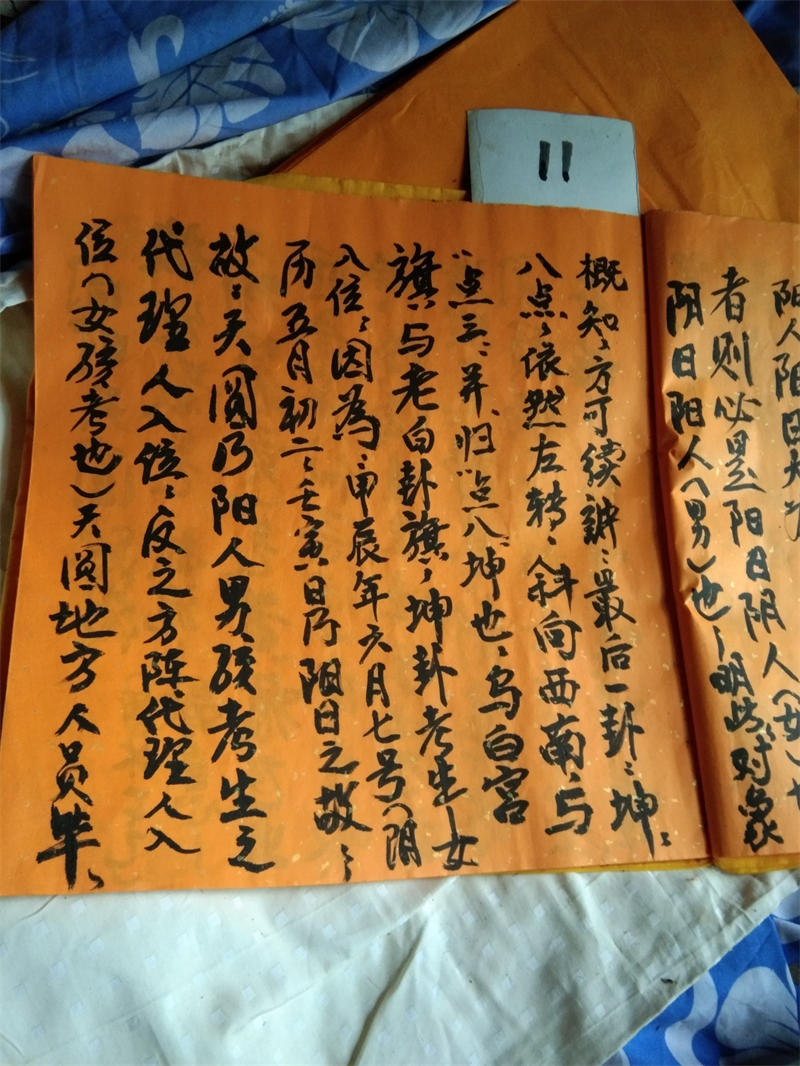 11
阳人阳日
者则必是阳日阴人(女)
阴日阳人(男)也,明此对象
概知,方可续 最后一卦:坤。
八点,依然左转,斜向西南,与
"点三",并归"点八"坤也,乌白宫
旗,与老白卦旗,坤卦考生女
入位,因为:甲辰年六月七号(阴
历五月初二,壬寅日)乃阳日之故,
故:天圆乃阳人男孩考生之
代理人入位,反之方阵代理人入
位(女孩考也)天圆地方人员毕。